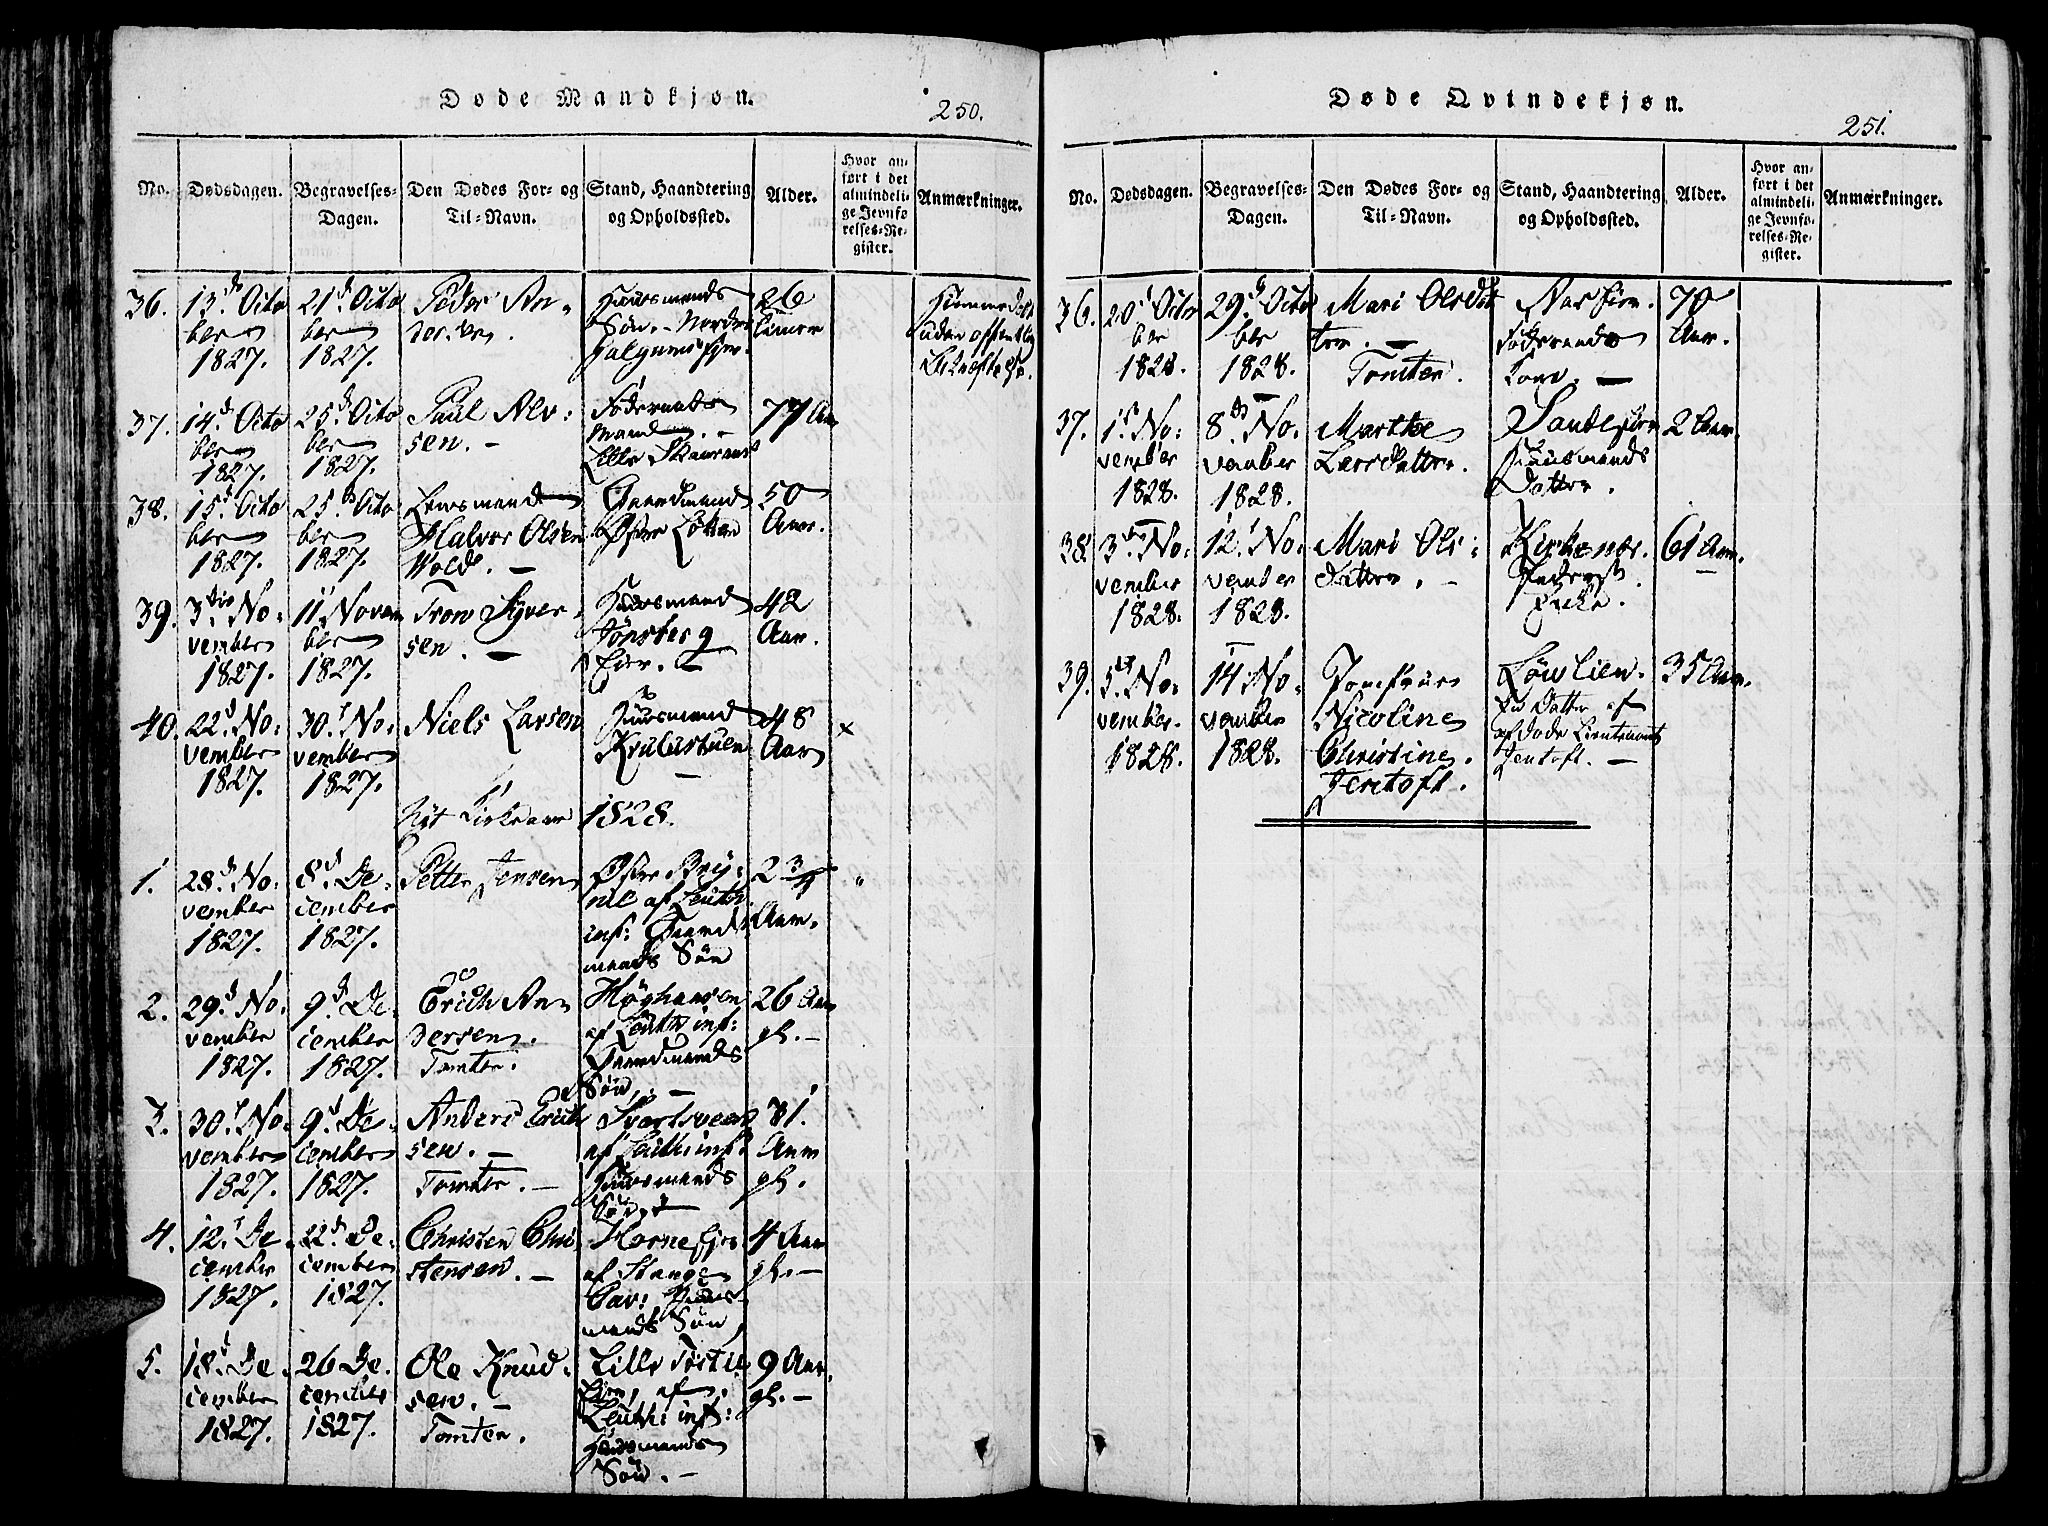 Døde Mandkjøn.
250.
No.
Dødsdagen.
Begravelses-
Dagen.
Den Dødes For- og
Til-Navn.
Stand, Haandtering
og Opholdssted.
Alder.
Hvor an-
ført i det
almindeli-
ge Jevnfø-
relses-Re-
gister.
Anmærkninger.
36.
13de Octo
ber
1827.
21de Octo
ber
1827.
Peder An-
dersen.
Huusmands
Søn.
26
Timer
Hjemmedøbt
37.
14de Octo
ber
1827.
25de Octo
ber
1827.
Paul Alv:
sen. –
Føderaads
Mand. –
77 Aar
38.
15de Octo
ber
1827.
25de Octo
ber
1827.
Lensmand
Halvor Olsen
Wold. –
Gaardmand
Østre Løken
50
Aar.
39.
3die No:
vember
1827.
11te Novem
ber
1827.
Tron Syver
sen. –
Huusmand
Tønsberg
Eier. –
42
Aar.
40.
22de No:
vember
1827.
30te No:
vember
1827.
Niels Larsen
Huusmand
Krulustuen
48
Aar
×
Nyt Kirkeaar 1828.
1.
28de No:
vember
1827.
8de De:
cember
1827.
Petter Jensen
Østre Bry:
nie af Leuth:
inf: Gaard
mands Søn
2 3/4
Aar.
2.
29de No:
vember
1827.
9de De:
cember
1827.
Erich An-
dersen.
Tomter.
af Leuth: inf:
Gaardmands
Søn. –
26 Aar
gl. –
3.
30te No:
vember
1827.
9de De:
cember
1827.
Anders Erich
sen. –
Tomter. –
Svartsveen
af Leuth: inf:
Huusmands
Søn. –
31.
Aar
gl.
4.
12te De
cember
1827.
22de De:
cember
1827.
Christen Chri
stensen. –
af Stange
Cav: Huus-
mands Søn
4 Aar
gl. –
5.
18de De
cember
1827.
26 De:
cember
1827.
Ole Knud:
sen. –
Tomter.
Lille
af
Leuth: inf:
Huusmands
Søn. –
9 Aar.
gl. –
Døde Qvindekjøn.
251.
No.
Dødsdagen.
Begravelses-
Dagen.
Den Dødes For- og
Til-Navn.
Stand, Haandtering
og Opholdssted.
Alder.
Hvor an-
ført i det
almindeli-
ge Jevnfø-
relses-Re-
gister.
Anmærkninger.
36.
20de Octo
ber
1828.
29de Octo
ber
1828.
Mari Olsdat
ter. –
Tomter.
Føderaads
Kone. –
70
Aar.
37.
1ste No:
vember
1828.
8de No:
vember
1828.
Marthe
Larsdatter.
Huusmands
Datter.
2 Aar.
38.
3die No:
vember
1828.
12te No:
vember
1828.
Mari Ols:
datter. –
Kirkenær.
Inderst
Enke.
61 Aar.
39.
5te No:
vember.
1828.
14 No:
vember
1828.
Jomfrue
Nicoline
Christine.
Jentoft.
Løvlien.
en Datter af
afdøde Lieutenant
Jentoft. –
35 Aar.